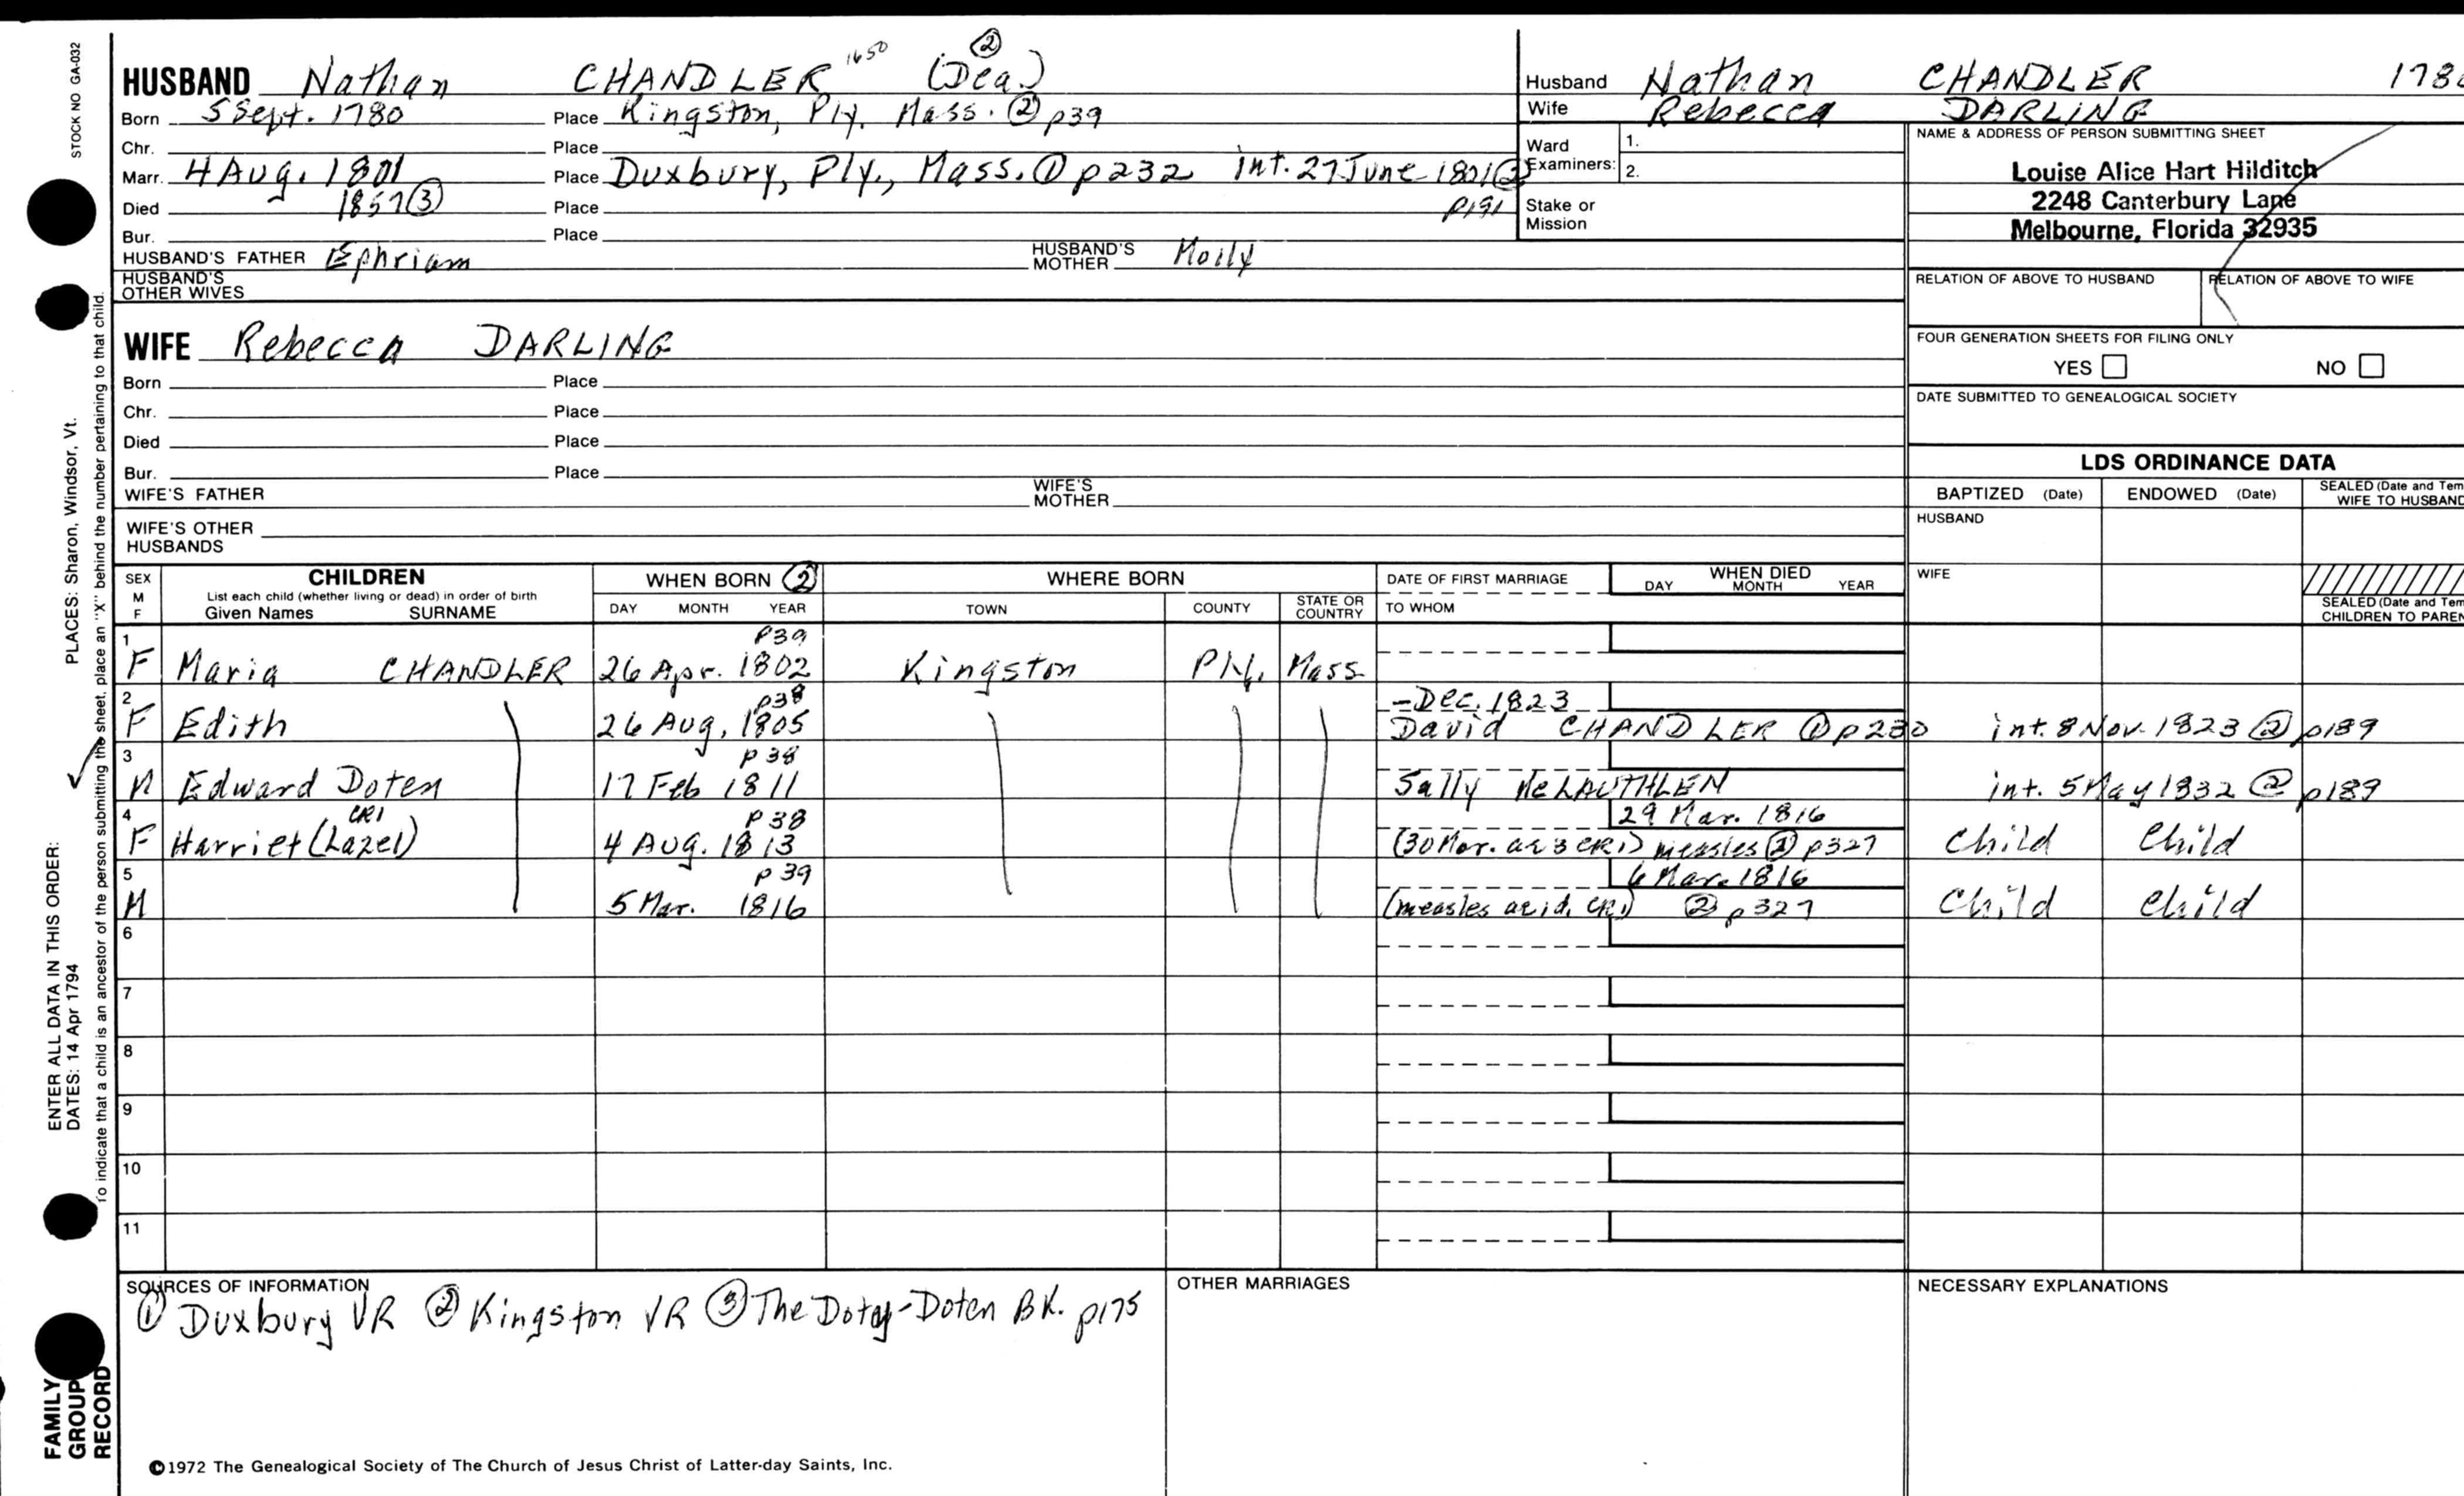 STOCK NO GA-032
HUSBAND Nathan CHANDLER 1650 (Dea.) ②
Born 5 Sept. 1780 Place Kingston, Ply. Mass. ② p39
Chr. Place
Marr. 4 Aug. 1801 Place Duxbury, Ply., Mass. ① p232 int. 27 June 1801 ② p191
Died 1857 ③ Place
Bur. Place
HUSBAND'S FATHER Ephriam HUSBAND'S MOTHER Molly
HUSBAND'S OTHER WIVES
WIFE Rebecca DARLING
Born Place
Chr. Place
Died Place
Bur. Place
WIFE'S FATHER WIFE'S MOTHER
WIFE'S OTHER HUSBANDS
Husband Nathan CHANDLER 178
Wife Rebecca DARLING
Ward Examiners: 1.
2.
Stake or Mission
NAME & ADDRESS OF PERSON SUBMITTING SHEET
Louise Alice Hart Hilditch
2248 Canterbury Lane
Melbourne, Florida 32935
RELATION OF ABOVE TO HUSBAND RELATION OF ABOVE TO WIFE
FOUR GENERATION SHEETS FOR FILING ONLY
YES NO
DATE SUBMITTED TO GENEALOGICAL SOCIETY
LDS ORDINANCE DATA
BAPTIZED (Date) ENDOWED (Date) SEALED (Date and Tem
WIFE TO HUSBAND
HUSBAND
WIFE
SEALED (Date and Tem
CHILDREN TO PAREN
SEX M F CHILDREN WHEN BORN ② WHERE BORN DATE OF FIRST MARRIAGE WHEN DIED
List each child (whether living or dead) in order of birth
Given Names SURNAME DAY MONTH YEAR TOWN COUNTY STATE OR COUNTRY TO WHOM DAY MONTH YEAR
1 p39
F Maria CHANDLER 26 Apr. 1802 Kingston Ply. Mass.
2 p38 -Dec. 1823
F Edith 26 Aug. 1805 David CHANDLER ① p230 int. 8 Nov. 1823 ② p189
3 p38
M Edward Doten 17 Feb 1811 Sally McLAUTHLEN int. 5 May 1832 ② p189
4 CR1 p38 29 Mar. 1816
F Harriet (Lazel) 4 Aug. 1813 (30 Mar. ae 3 CR1) measles ② p327 Child Child
5 p39 6 Mar. 1816
M 5 Mar. 1816 (measles ae 1d, CR1) ② p327 Child Child
6
7
8
9
10
11
SOURCES OF INFORMATION
① Duxbury VR ② Kingston VR ③ The Doty-Doten BK. p175
OTHER MARRIAGES
NECESSARY EXPLANATIONS
©1972 The Genealogical Society of The Church of Jesus Christ of Latter-day Saints, Inc.
ENTER ALL DATA IN THIS ORDER:
DATES: 14 Apr 1794 PLACES: Sharon, Windsor, Vt.
To indicate that a child is an ancestor of the person submitting the sheet, place an "X" behind the number pertaining to that child.
FAMILY
GROUP
RECORD